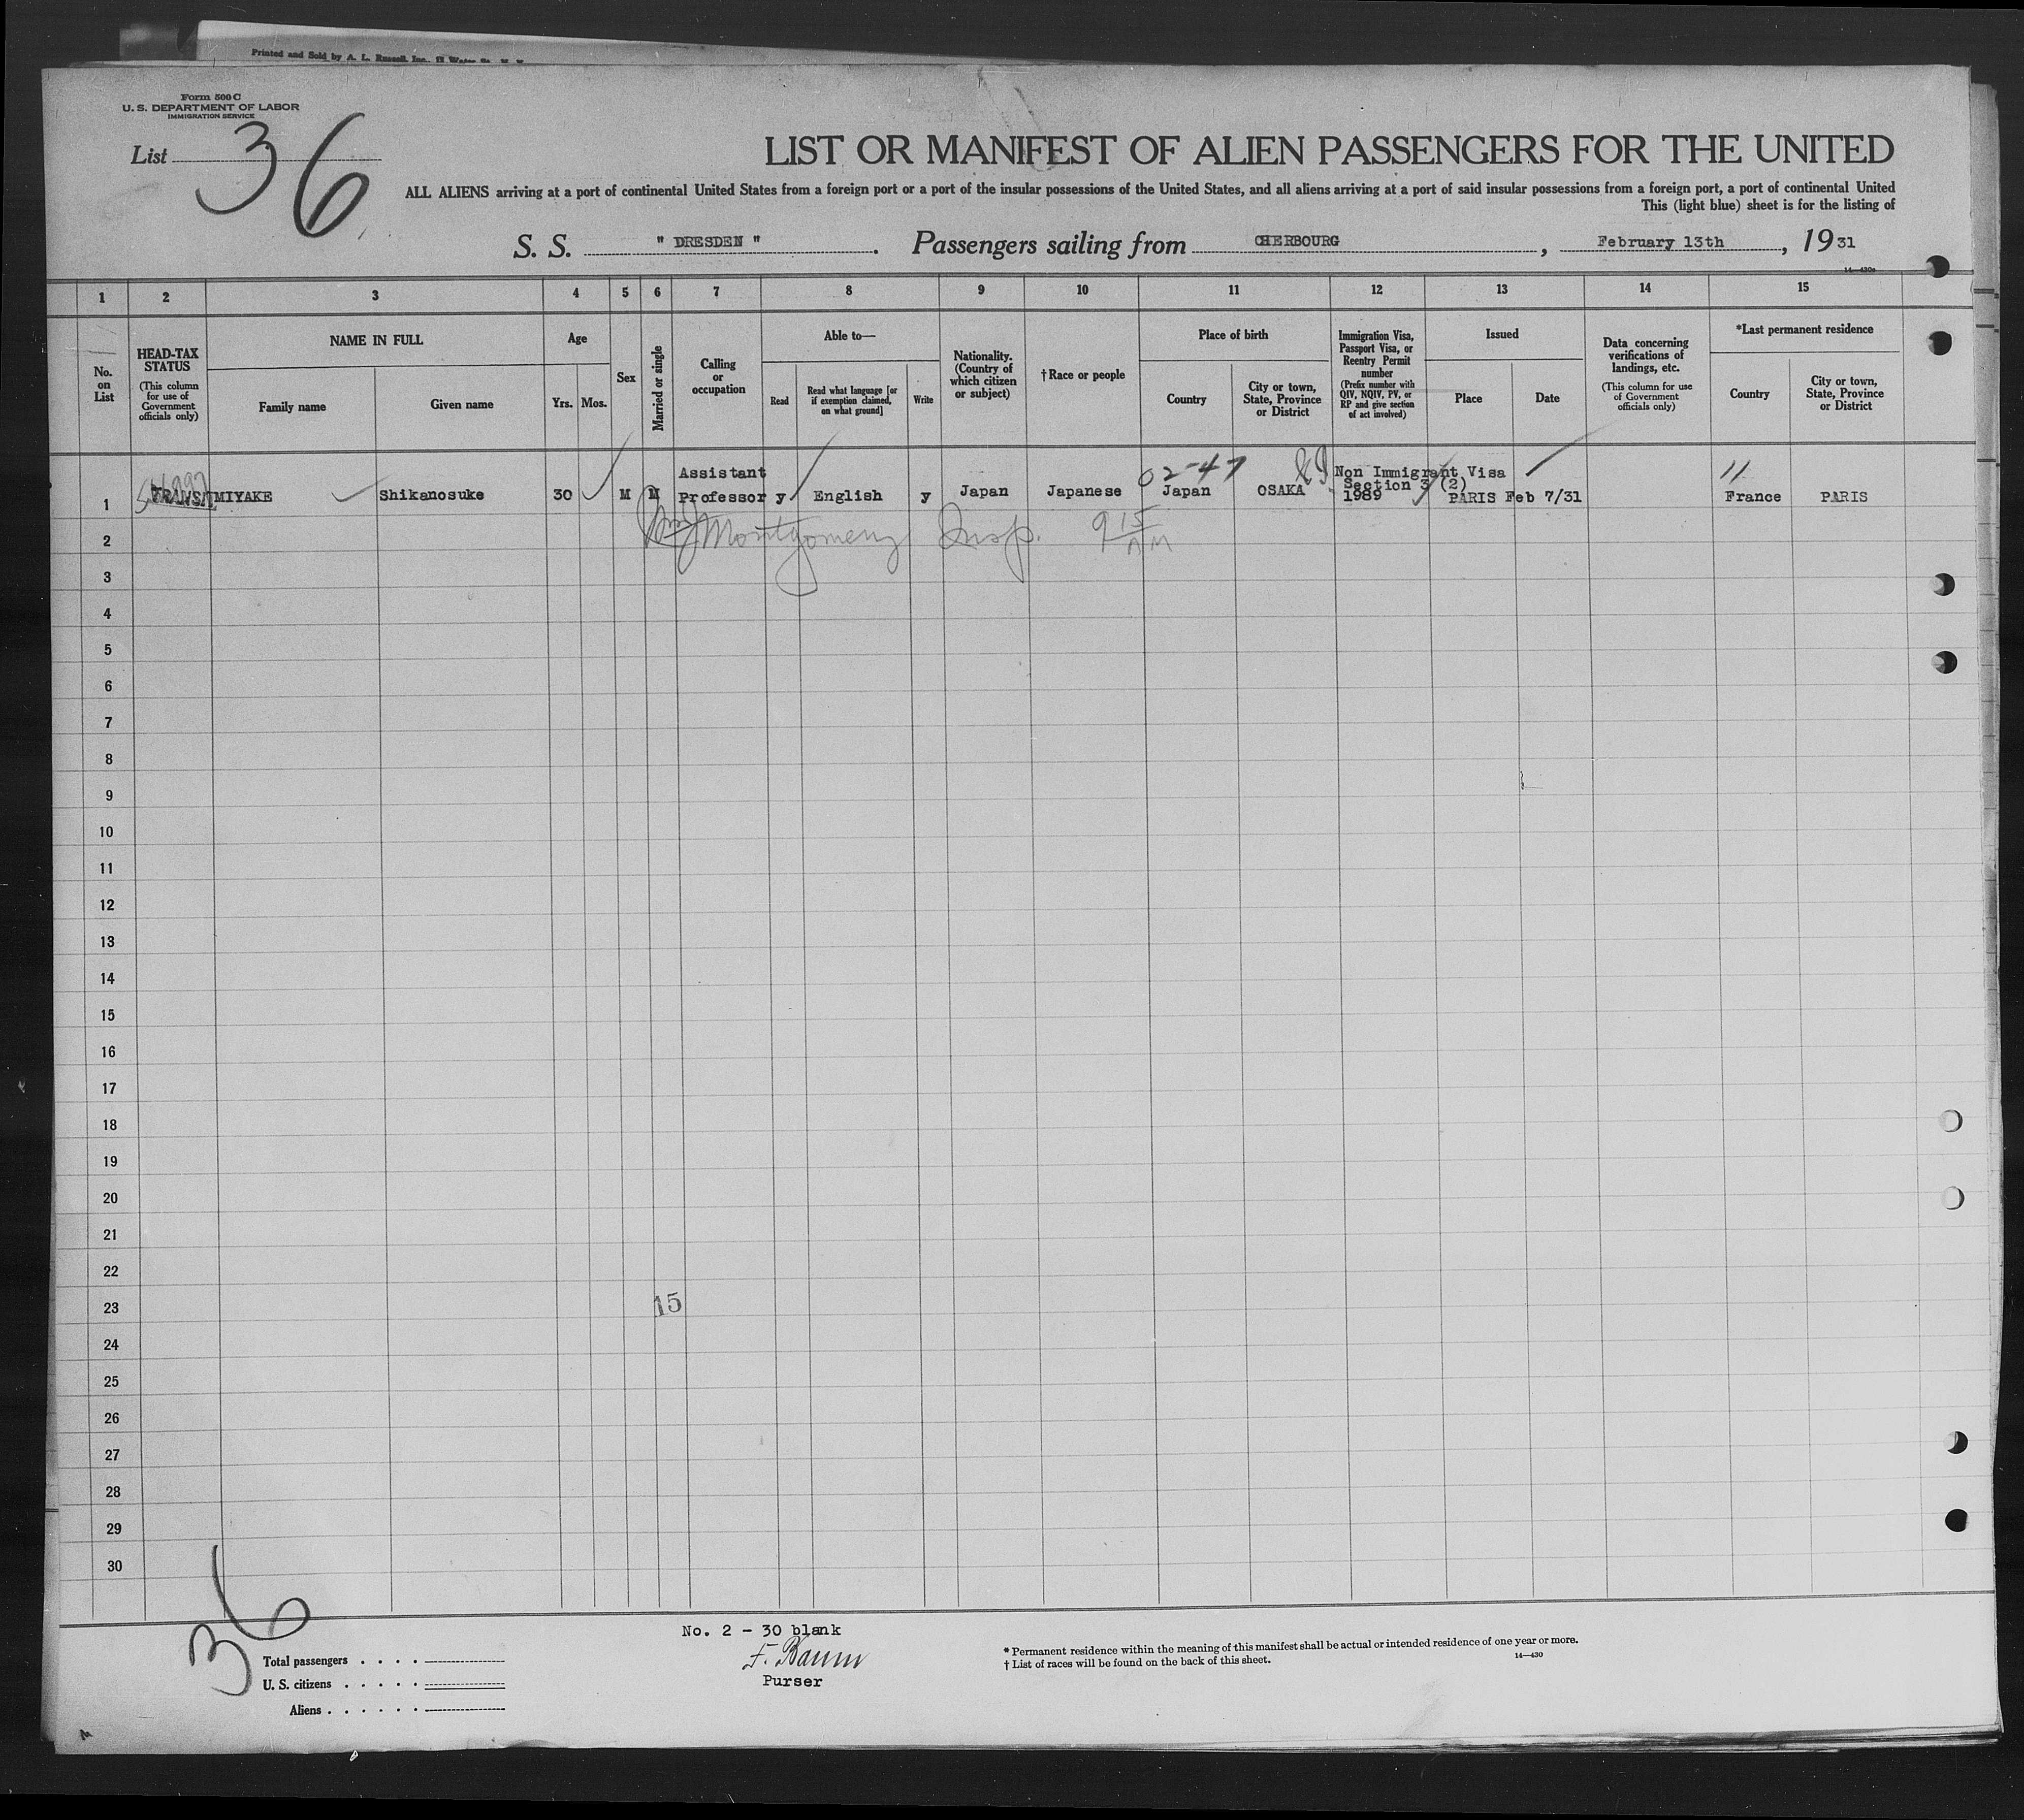 Printed and Sold by A. L. Russell, Inc.,
Form 500 C
U. S. DEPARTMENT OF LABOR
IMMIGRATION SERVICE
List 36
LIST OR MANIFEST OF ALIEN PASSENGERS FOR THE UNITED
ALL ALIENS arriving at a port of continental United States from a foreign port or a port of the insular possessions of the United States, and all aliens arriving at a port of said insular possessions from a foreign port, a port of continental United
This (light blue) sheet is for the listing of
S. S. " DRESDEN ". Passengers sailing from CHERBOURG, February 13th, 1931
1 2 3 4 5 6 7 8 9 10 11 12 13 14 15
No. on List
HEAD-TAX STATUS (This column for use of Government officials only)
NAME IN FULL
Family name
Given name
Age
Yrs. Mos.
Sex
Married or single
Calling or occupation
Able to—
Read
Read what language [or if exemption claimed, on what ground]
Write
Nationality. (Country of which citizen or subject)
†Race or people
Place of birth
Country
City or town, State, Province or District
Immigration Visa, Passport Visa, or Reentry Permit number (Prefix number with QIV, NQIV, PV, or RP and give section of act involved)
Issued
Place
Date
Data concerning verifications of landings, etc. (This column for use of Government officials only)
*Last permanent residence
Country
City or town, State, Province or District
02-47
11
1 TRANSIT MIYAKE Shikanosuke 30 M M Assistant Professor y English y Japan Japanese Japan OSAKA Non Immigrant Visa Section 3 (2) 1989 PARIS Feb 7/31 France PARIS
2 Montgomery Insp. 9 15 AM
3
4
5
6
7
8
9
10
11
12
13
14
15
16
17
18
19
20
21
22
23 15
24
25
26
27
28
29
30
36
No. 2 - 30 blank
F. Baum
Purser
Total passengers
U. S. citizens
Aliens
* Permanent residence within the meaning of this manifest shall be actual or intended residence of one year or more.
† List of races will be found on the back of this sheet.
14—430